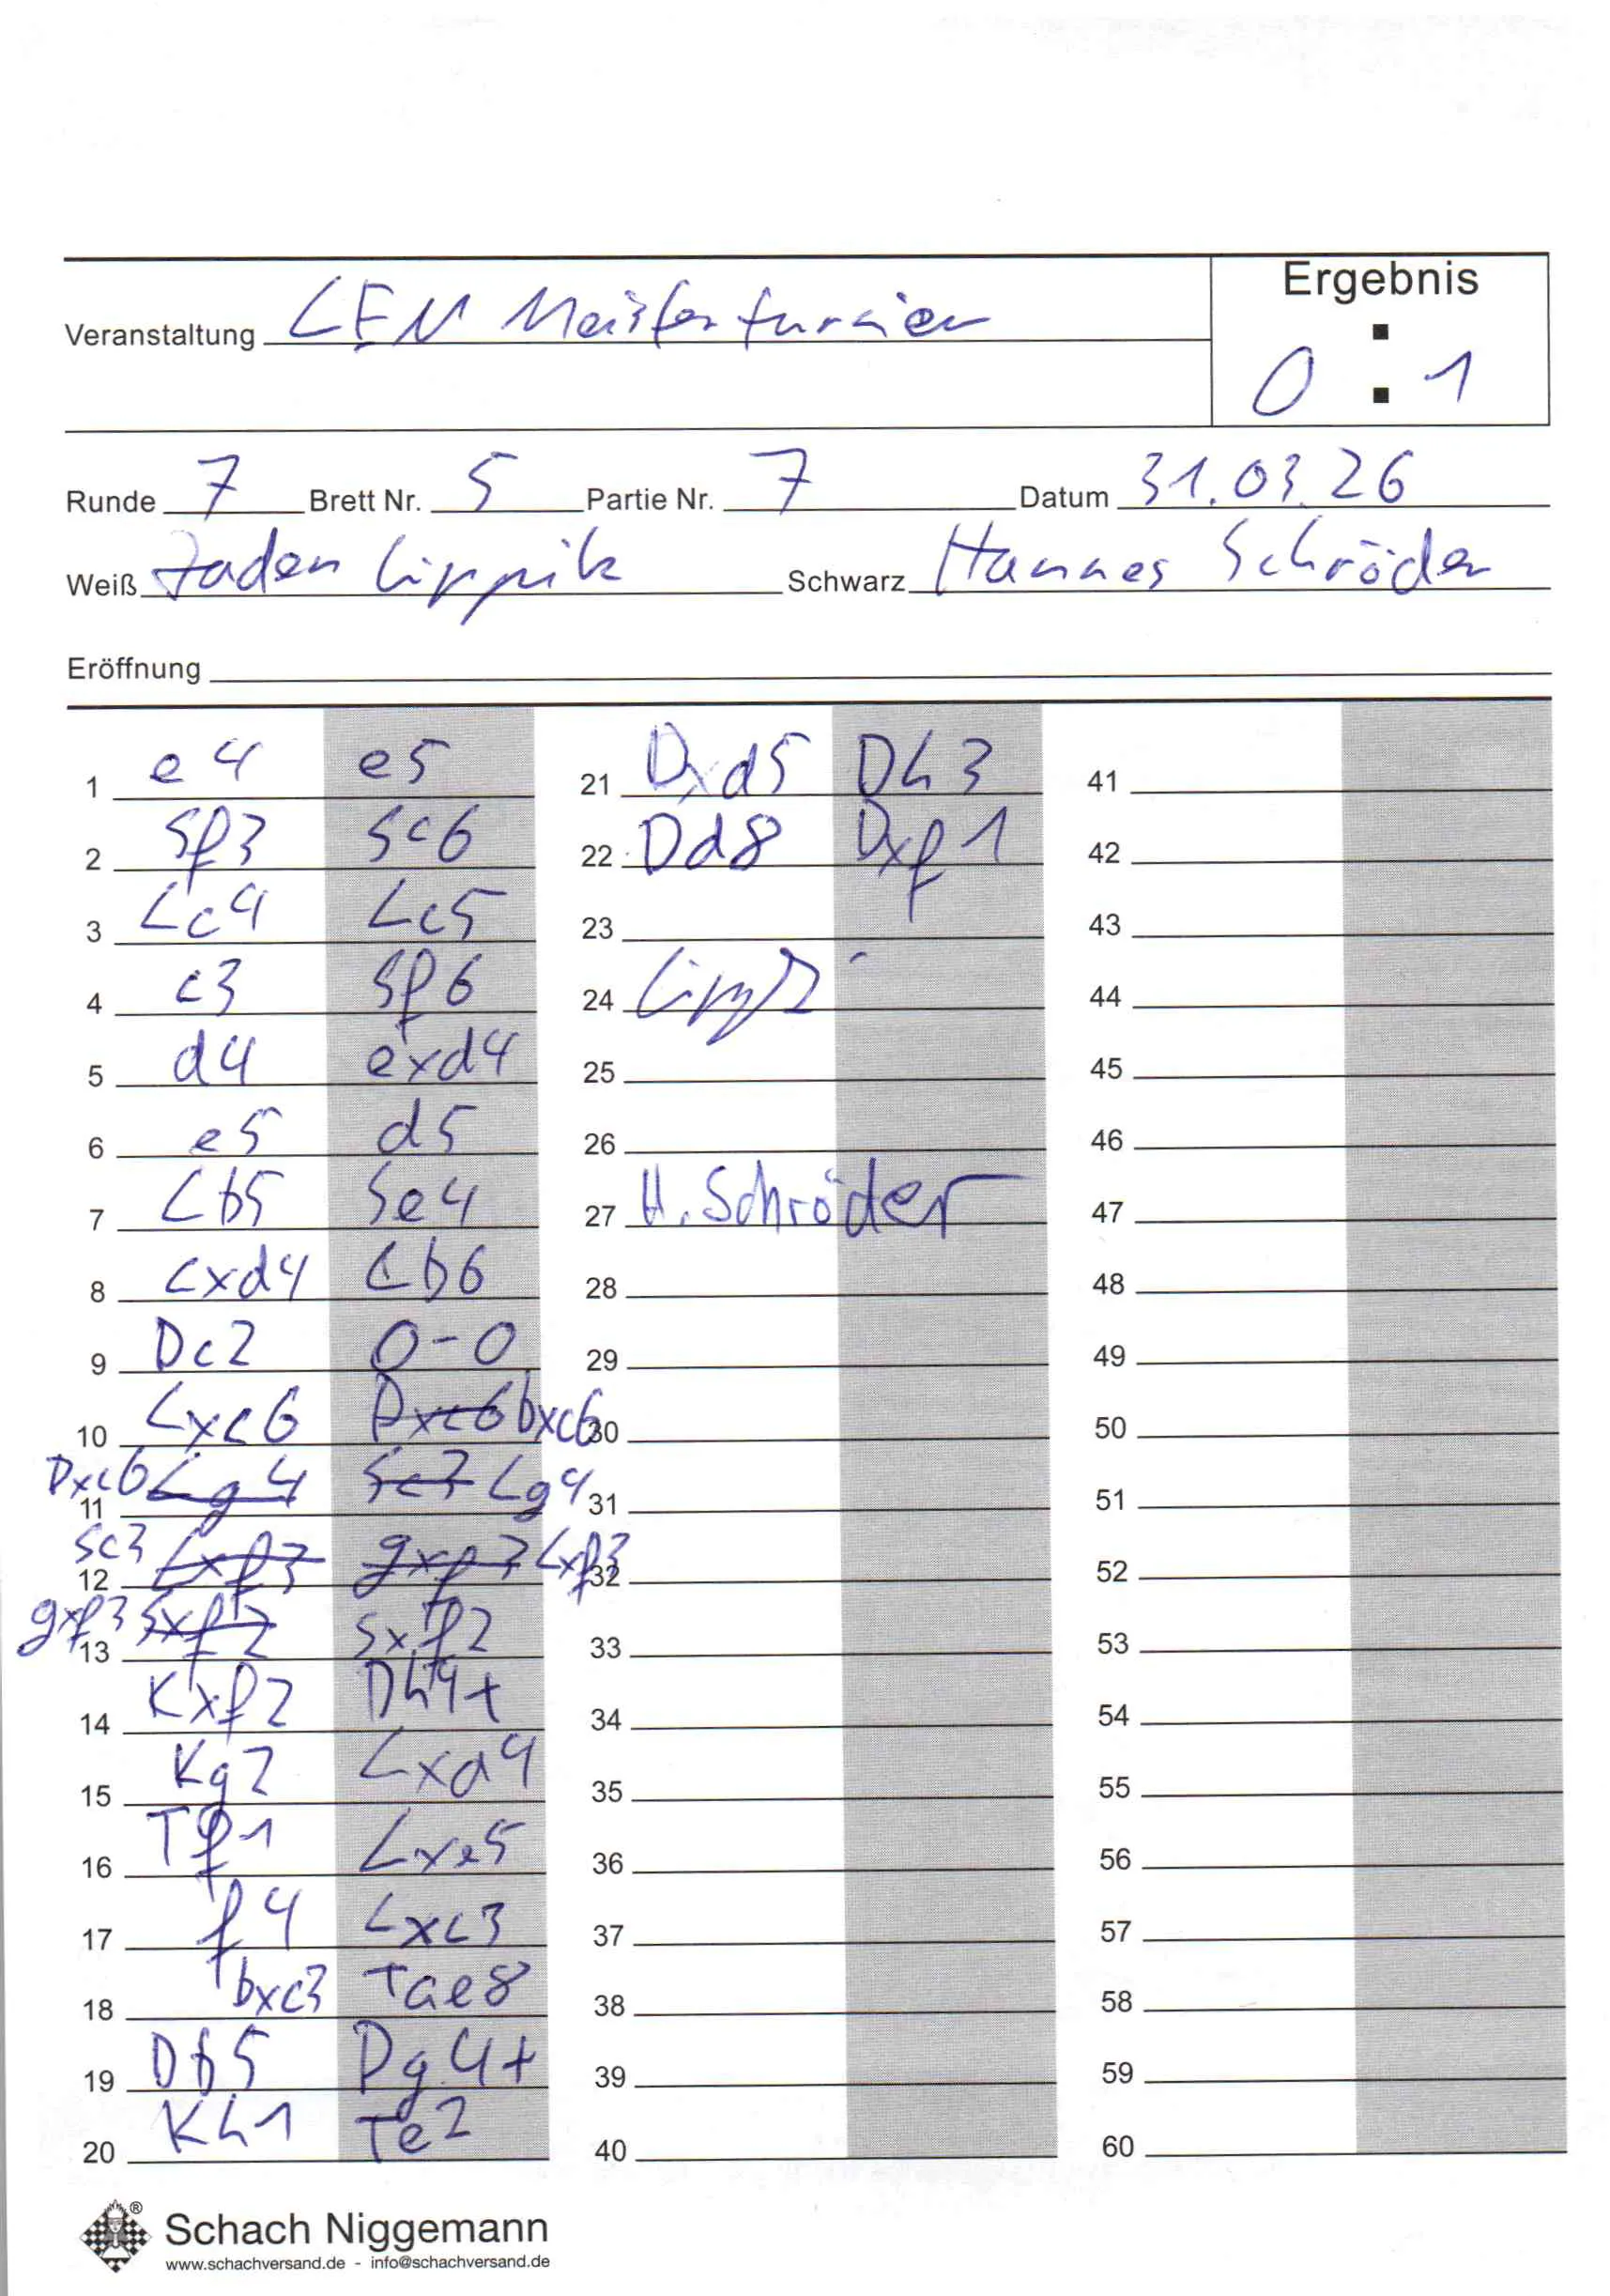 Ergebnis
Veranstaltung LEM Meisterturnier
0 : 1
Runde 7 Brett Nr. 5 Partie Nr. 7 Datum 31.03.26
Weiß Jaden Lippik Schwarz Hannes Schröder
Eröffnung
1 e4 e5
2 Sf3 Sc6
3 Lc4 Lc5
4 c3 Sf6
5 d4 exd4
6 e5 d5
7 Lb5 Se4
8 cxd4 Lb6
9 Dc2 0-0
10 Lxc6 Dxc6 bxc6
11 Dxc6 Lg4 Sc3 Lg4
12 Sc3 Lxf3 gxf3 Lxf3
13 gxf3 Sxf2 Sxf2
14 Kxf2 Dh4+
15 Kg2 Lxd4
16 Tf1 Lxe5
17 f4 Lxc3
18 bxc3 Tae8
19 Db5 Dg4+
20 Kh1 Te2
21 Dxd5 Dh3
22 Dd8 Dxf1
23
24
25
26
27 H. Schröder
28
29
30
31
32
33
34
35
36
37
38
39
40
41
42
43
44
45
46
47
48
49
50
51
52
53
54
55
56
57
58
59
60
Schach Niggemann
www.schachversand.de - info@schachversand.de